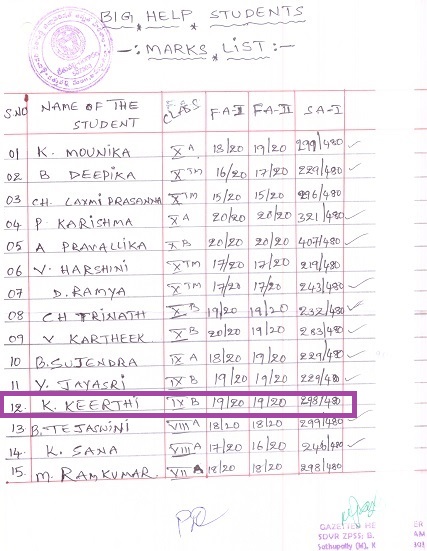 BIG HELP STUDENTS
-: MARKS LIST :-
S.NO NAME OF THE STUDENT CLASS FA-I FA-II SA-I
01 K. MOUNIKA X A 18/20 19/20 299/480
02 B DEEPIKA X TM 16/20 17/20 229/480
03 CH. LAXMI PRASANNA X TM 15/20 15/20 296/480
04 P KARISHMA X A 20/20 20/20 321/480
05 A PRAVALLIKA X B 20/20 20/20 407/480
06 V. HARSHINI X TM 17/20 17/20 219/480
07 D. RAMYA X TM 17/20 17/20 243/480
08 CH TRINATH X B 19/20 19/20 232/480
09 V KARTHEEK X B 20/20 19/20 283/480
10 B. SUJENDRA IX A 18/20 18/20 229/480
11 V. JAYASRI IX B 19/20 19/20 229/480
12. K. KEERTHI IX B 19/20 19/20 298/480
13 B. TEJASWINI VIII A 18/20 18/20 299/480
14. K. SANA VIII A 17/20 16/20 246/480
15. M. RAMKUMAR VII A 18/20 18/20 298/480
SDVR ZPSS: B.
Sathupally (M),